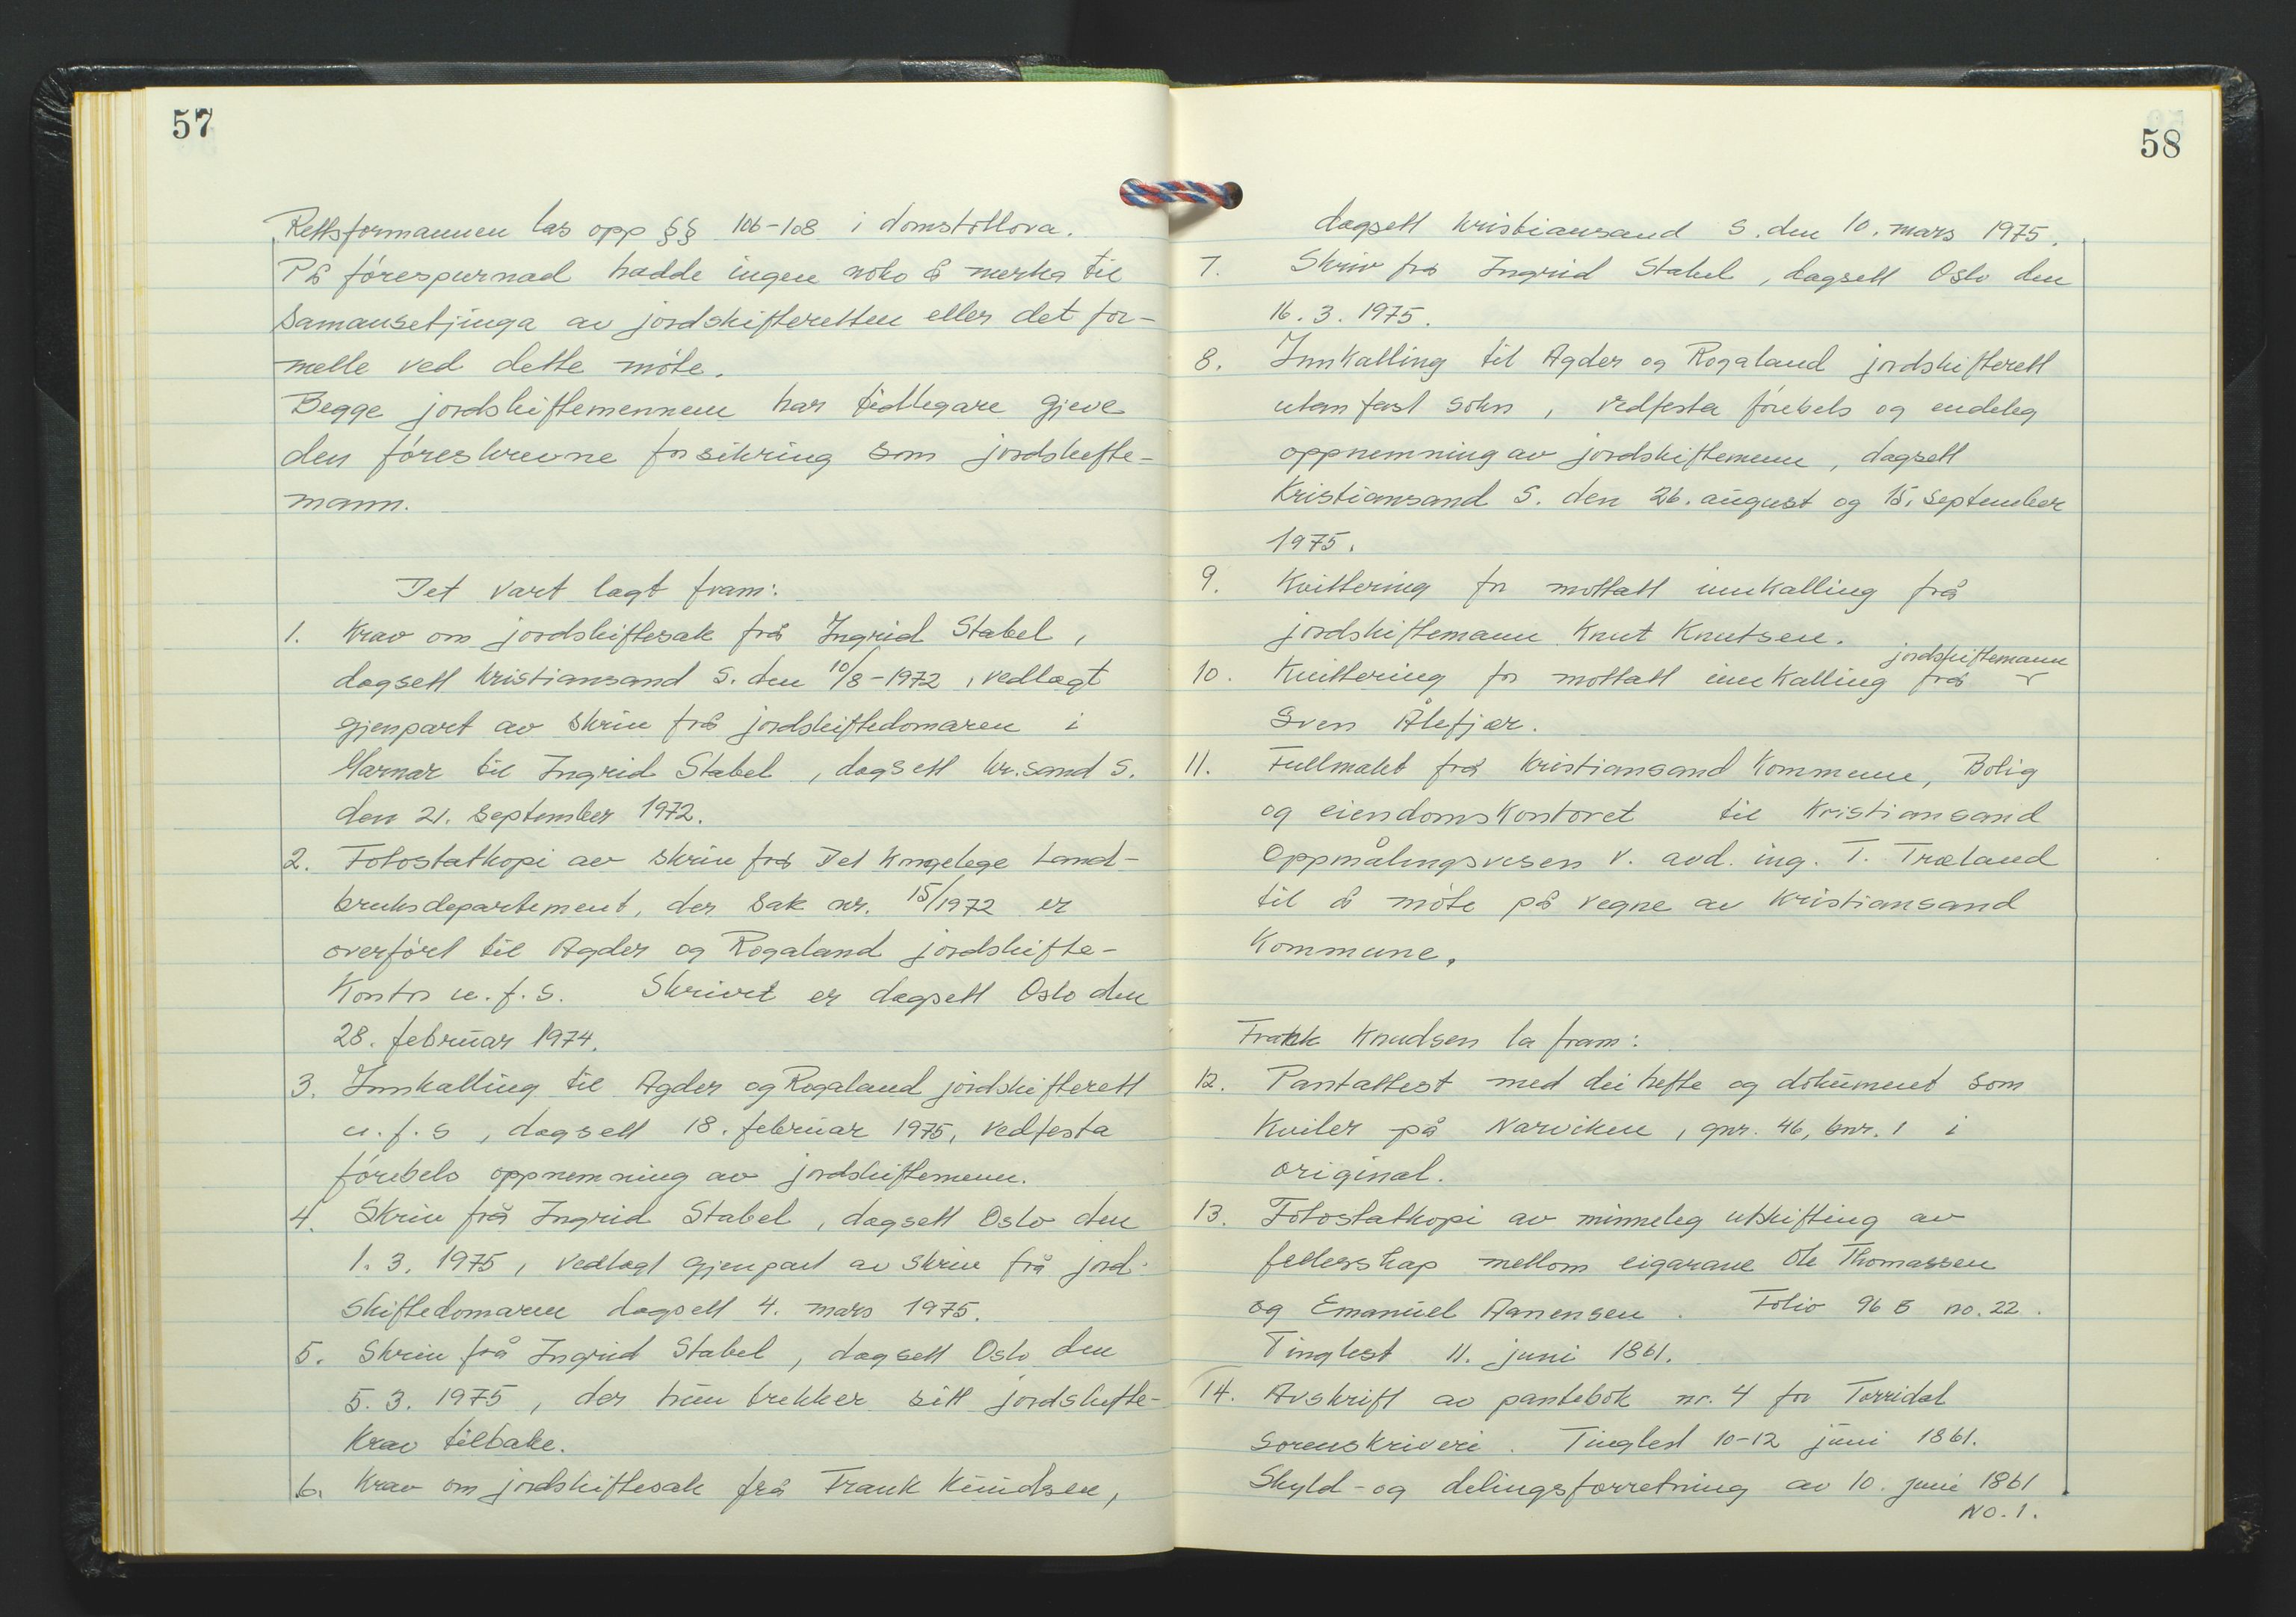 57
Rettsformannen las opp §§ 106-108 i domstollova.
På fórespurnad hadde ingen noko å merka til
samansetjinga av jordskifteretten eller det for-
melle ved dette móte.
Begge jordskiftemennene har tidlegare gjeve
den fóreskrevne forsikring som jordskifte-
mann.
Det vart lagt fram:
1. Krav om jordskiftesak frå Ingrid Stabel,
dagsett Kristiansand S. den 10/8-1972, vedlagt
gjenpart av skriv frå jordskiftedomaren i
Marnar til Ingrid Stabel, dagsett Kr.sand S.
den 21. september 1972.
2. Fotostatkopi av skriv frå Det Kongelege Land-
bruksdepartement, der sak nr. 15/1972 er
overfórt til Agder og Rogaland jordskifte-
Kontor u.f.s. Skrivet er dagsett Oslo den
28. februar 1974.
3. Innkalling til Agder og Rogaland jordskifterett
u.f.s, dagsett 18. februar 1975, vedfesta
fórebels oppnemning av jordskiftemenn.
4. Skriv frå Ingrid Stabel, dagsett Oslo den
1.3.1975, vedlagt gjenpart av skriv frå jord-
skiftedomaren dagsett 4. mars 1975.
5. Skriv frå Ingrid Stabel, dagsett Oslo den
5.3.1975, der hun trekker sitt jordskifte-
krav tilbake.
6. Krav om jordskiftesak frå Frank Knudsen,
58
dagsett Kristiansand S. den 10. mars 1975.
7. Skriv frå Ingrid Stabel, dagsett Oslo den
16.3.1975.
8. Innkalling til Agder og Rogaland jordskifterett
utanfast sokn, vedfesta fórebels og endeleg
oppnemning av jordskiftemenn, dagsett
Kristiansand S. den 26. august og 15. september
1975.
9. Kvittering for mottatt innkalling frå
jordskiftemann Knut Knutsen.
jordskiftemann
10. Kvittering for mottatt innkalling frå
Sven Ålefjær.
11. Fullmakt frå Kristiansand Kommune, Bolig
og eiendomskontoret til Kristiansand
Oppmålingsvesen v. avd. ing. T. Træland
til å móte på vegne av Kristiansand
Kommune.
Frank Knudsen la fram:
12. Pantattest med dei hefte og dokument som
Kviler på Narviken, gnr. 46, bnr. 1 i
original.
13. Fotostatkopi av minneleg utskifting av
fellesskap mellom eigarane Ole Thomassen
og Emanuel Aanensen. Folio 96 B no. 22.
Tinglest 11. juni 1861.
14. Avskrift av pantebok nr. 4 for Torridal
sorenskriveri. Tinglest 10-12 juni 1861.
Skyld- og delingsforretning av 10. juni 1861
No. 1.